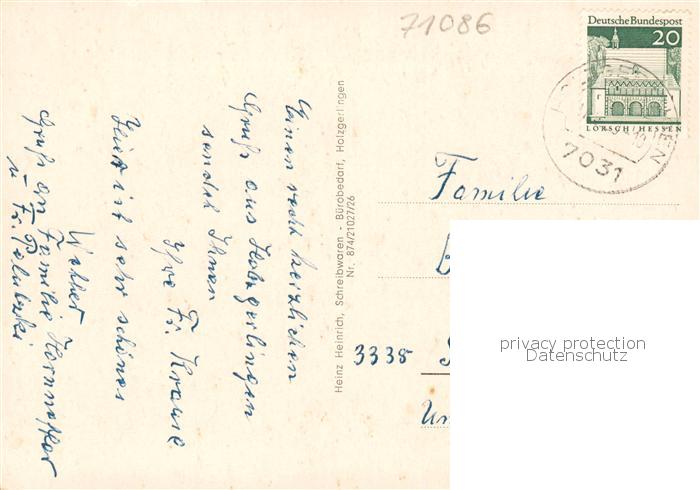 71086
Deutsche Bundespost
20
LORSCH/HESSEN
7031
Einen recht herzlichen
Gruß aus Holzgerlingen
sendet Ihnen
Ihre Fr. Krause
Hier ist sehr schönes
Wetter
Gruß an Familie
u Fr.
Heinz Heinrich, Schreibwaren - Bürobedarf, Holzgerlingen
Nr. 874/21027/26
Familie
3338
privacy protection
Datenschutz